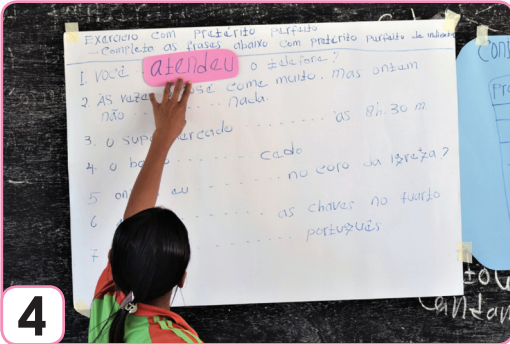 Exercício com pretérito perfeito
Completa as frases abaixo com pretérito perfeito de indicativo
1. você atendeu o telefone?
2. ÀS vezes José come muito, mas ontem
não ........ nada.
3. o supermercado ........ às 8h.30 m
4. o ........ cedo
5. eu ........ no coro da igreja?
6 ........ as chaves no quarto
7 ........ português
4